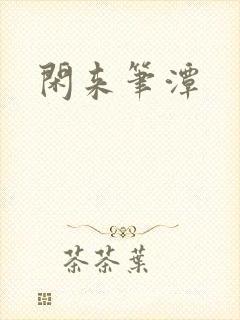 閑来筆潭
茶茶葉